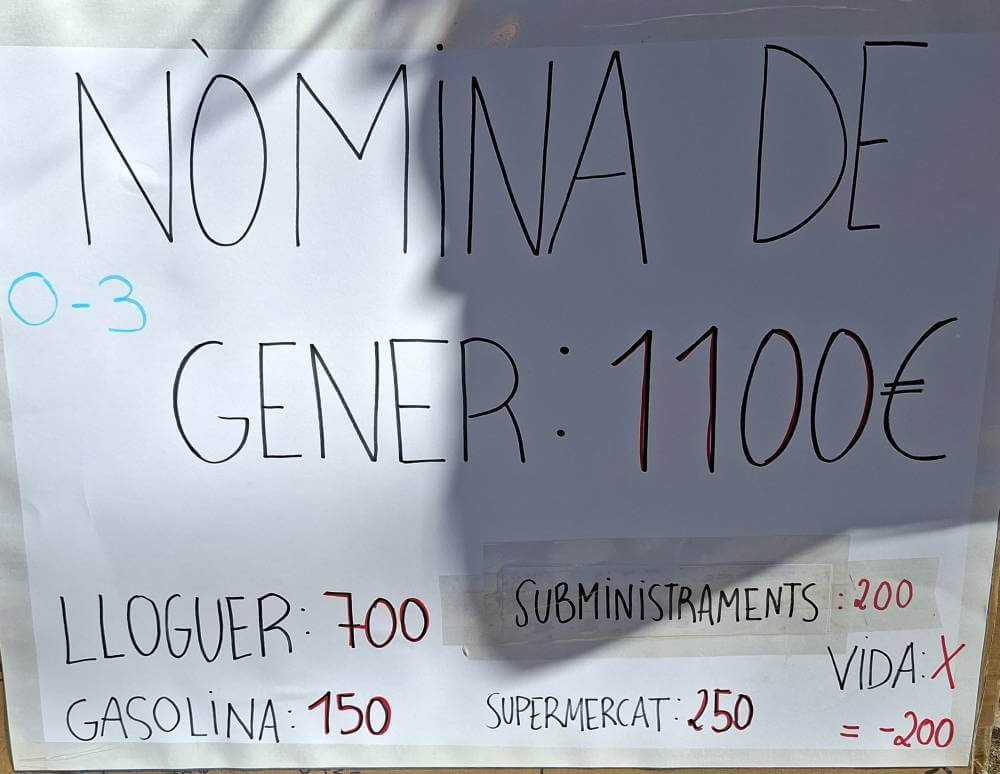 NÒMINA DE
0-3
GENER: 1100€
LLOGUER: 700
SUBMINISTRAMENTS: 200
GASOLINA: 150
SUPERMERCAT: 250
VIDA: X
= -200